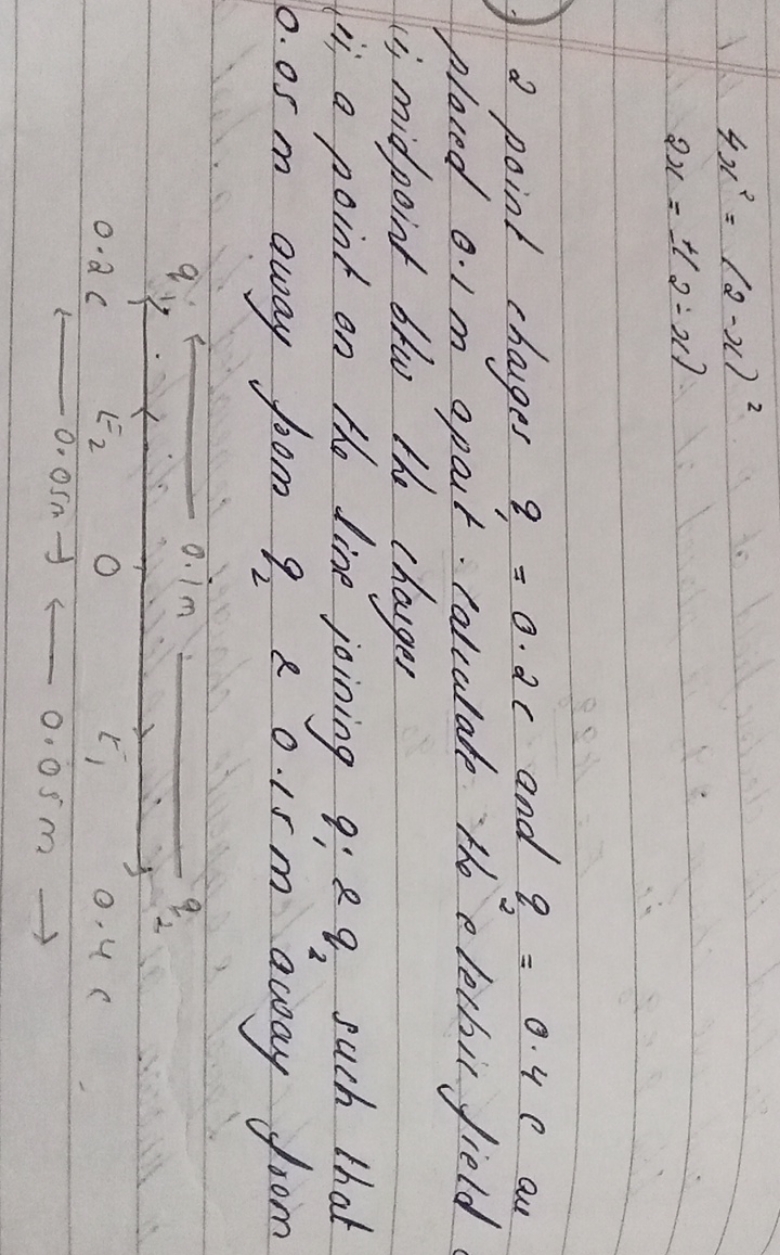 4x² = (2-x)²
2x = ±(2-x)
2 point charges q₁ = 0.2 C and q₂ = 0.4 C au
placed 0.1 m apart. calculate the electric field
(i) midpoint btw the charges
(ii) a point on the line joining q₁ & q₂ such that
0.05 m away from q₂ & 0.15 m away from
q₁ 0.1m q₂
0.2 C E₂ O E₁ 0.4 C
0.05m 0.05 m